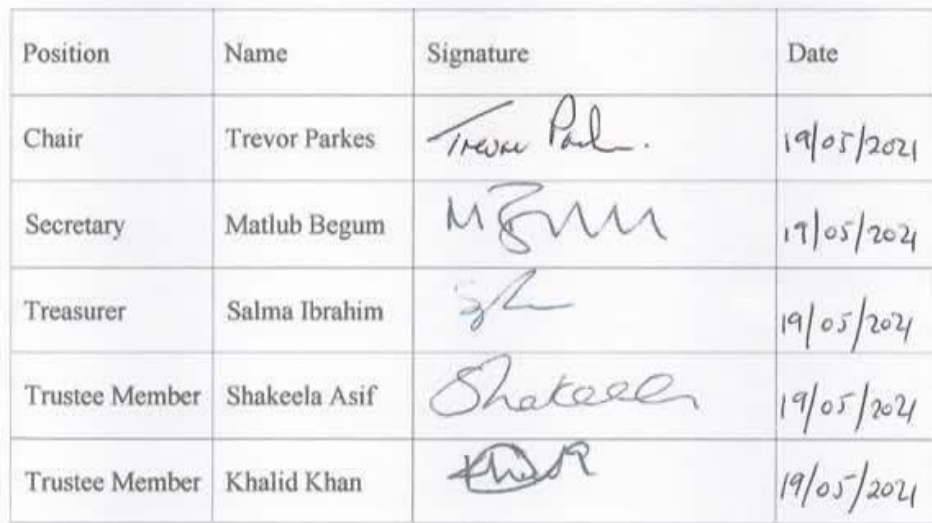 Position Name Signature Date
Chair Trevor Parkes Trevor 19/05/2021
Secretary Matlub Begum M Begum 19/05/2021
Treasurer Salma Ibrahim 19/05/2021
Trustee Member Shakeela Asif Shakeela 19/05/2021
Trustee Member Khalid Khan 19/05/2021